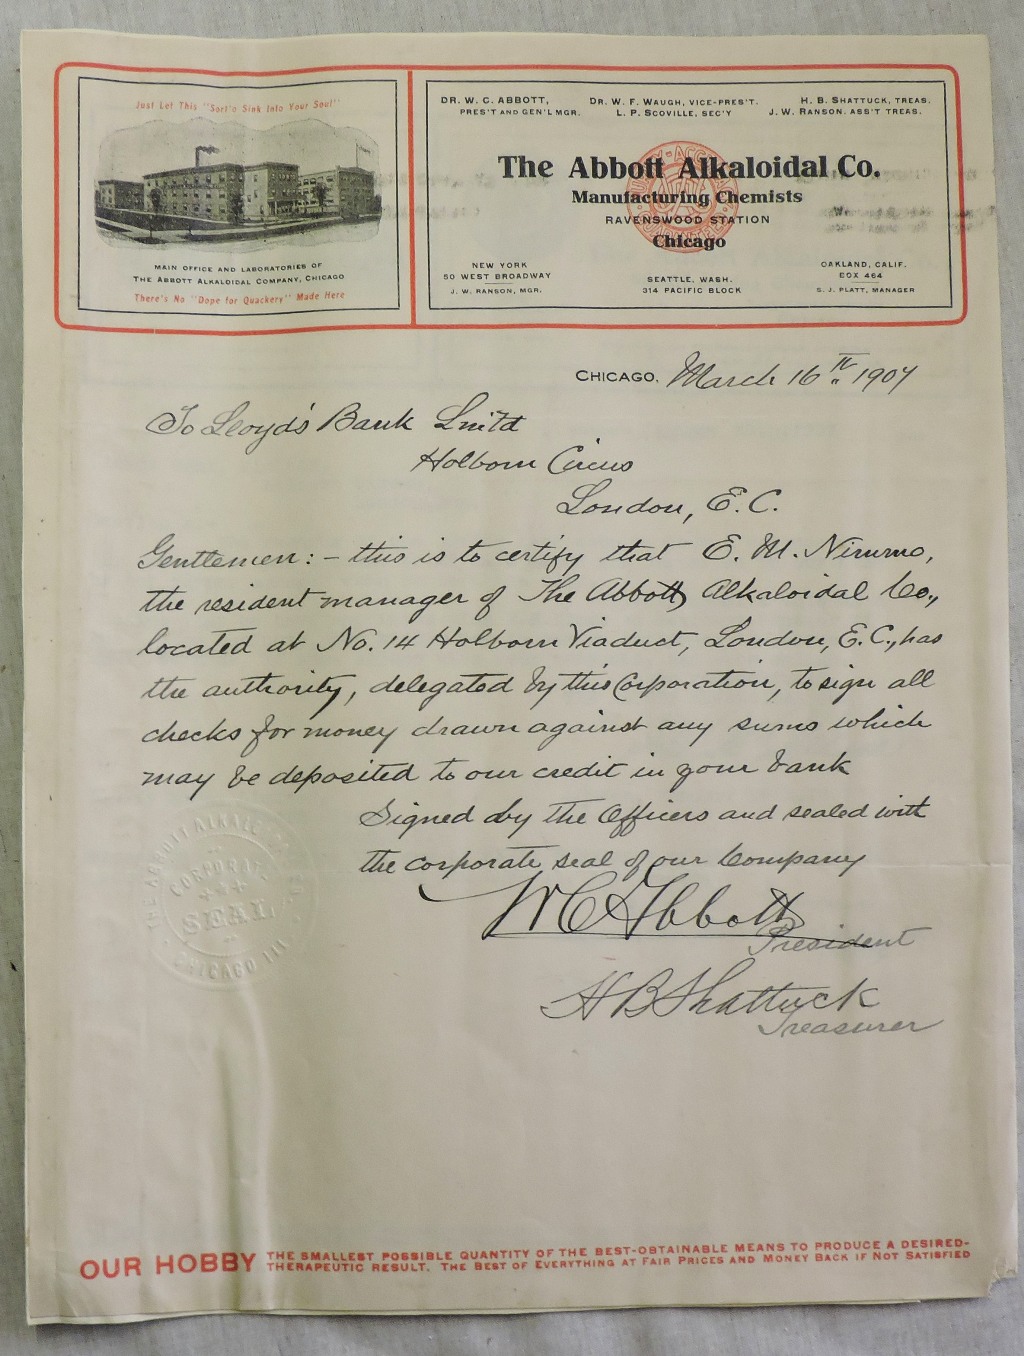 Just Let This "Sort'o Sink Into Your Soul"
MAIN OFFICE AND LABORATORIES OF
THE ABBOTT ALKALOIDAL COMPANY, CHICAGO
There's No "Dope for Quackery" Made Here
DR. W. C. ABBOTT,
PRES'T AND GEN'L MGR.
DR. W. F. WAUGH, VICE-PRES'T.
L. P. SCOVILLE, SEC'Y
H. B. SHATTUCK, TREAS.
J. W. RANSON. ASS'T TREAS.
The Abbott Alkaloidal Co.
Manufacturing Chemists
RAVENSWOOD STATION
Chicago
NEW YORK
50 WEST BROADWAY
J. W. RANSON, MGR.
SEATTLE, WASH.
314 PACIFIC BLOCK
OAKLAND, CALIF.
BOX 464
S. J. PLATT, MANAGER
CHICAGO, March 16th. 1907
To Lloyd's Bank Lmit'd
Holborn Circus
London, E.C.
Gentlemen: - this is to certify that E. M. Nimmo,
the resident manager of The Abbott Alkaloidal Co.,
located at No. 14 Holborn Viaduct, London, E.C., has
the authority, delegated by this Corporation, to sign all
checks for money drawn against any sums which
may be deposited to our credit in your bank
Signed by the Officers and sealed with
the corporate seal of our Company
W C Abbott
President
H B Shattuck
Treasurer
THE ABBOTT ALKALOIDAL CO.
CORPORATE
SEAL
CHICAGO ILL
OUR HOBBY THE SMALLEST POSSIBLE QUANTITY OF THE BEST-OBTAINABLE MEANS TO PRODUCE A DESIRED-
THERAPEUTIC RESULT. THE BEST OF EVERYTHING AT FAIR PRICES AND MONEY BACK IF NOT SATISFIED